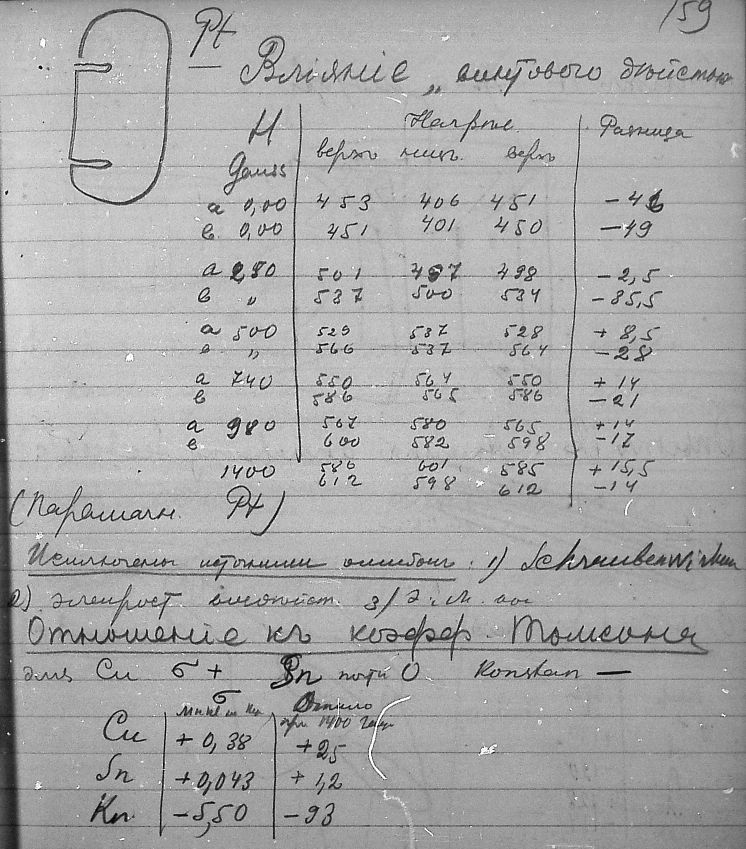 159
Pt
Вліяніе „винтового дѣйств
H Напряже. Разница
Gauss верхъ низъ верхъ
а 0,00 453 406 451 −46
в 0,00 451 401 450 −49
а 280 501 497 498 −2,5
в „ 537 500 534 −35,5
а 500 529 537 528 +8,5
в „ 566 537 564 −28
а 740 550 564 550 +14
в 586 565 586 −21
а 980 567 580 565 +14
в 600 582 598 −17
1400 586 601 585 +15,5
612 598 612 −14
(Парамагн. Pt)
Исключены источники ошибокъ: 1) Schraubenwirkun
2) электрост. 3)
Отношеніе къ коэфф. Томсона
для Cu σ + Sn почти 0 Konstan —
σ
при 1400 Гаус
Cu +0,38 +25
Sn +0,043 +1,2
Kn −5,50 −93